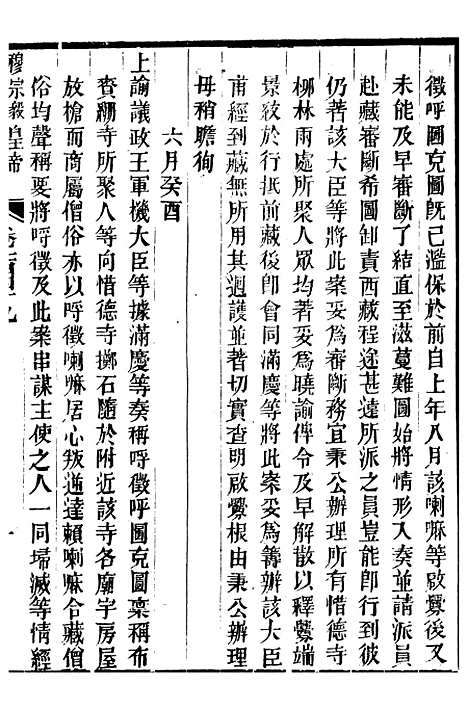 徵呼圖克圖旣已濫保於前自上年八月該喇嘛等啟釁後又
未能及早審斷了結直至滋蔓難圖始將情形入奏並請派員
赴藏審斷希圖卸責西藏程途甚遠所派之員豈能卽行到彼
仍著該大臣等將此案妥為審斷務宜秉公辦理所有惜德寺
柳林兩處所聚人眾均著妥為曉諭俾令及早解散以釋釁端
景紋於行抵前藏後卽會同滿慶等將此案妥為籌辦該大臣
甫經到藏無所用其迴護並著切實查明啟釁根由秉公辦理
毋稍瞻徇
六月癸酉
上諭議政王軍機大臣等據滿慶等奏稱呼徵呼圖克圖稟稱布
賚繃寺所聚人等向惜德寺擲石隨於附近該寺各廟宇房屋
放槍而商屬僧俗亦以呼徵喇嘛居心叛逆達賴喇嘛合藏僧
俗均聲稱要將呼徵及此案串謀主使之人一同埽滅等情經
穆宗毅皇帝